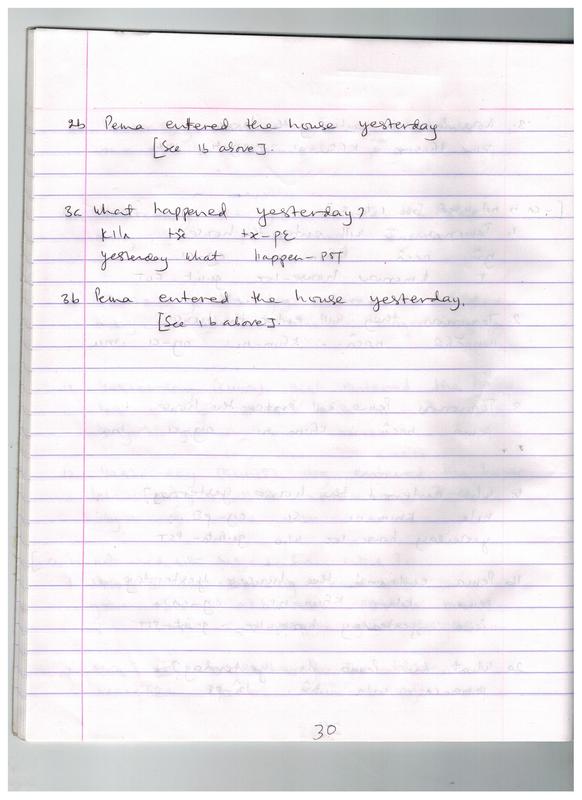 2b Pema entered the house yesterday
[See 1b above].
3a What happened yesterday?
yesterday what happen-PST
3b Pema entered the house yesterday.
[See 1b above].
30